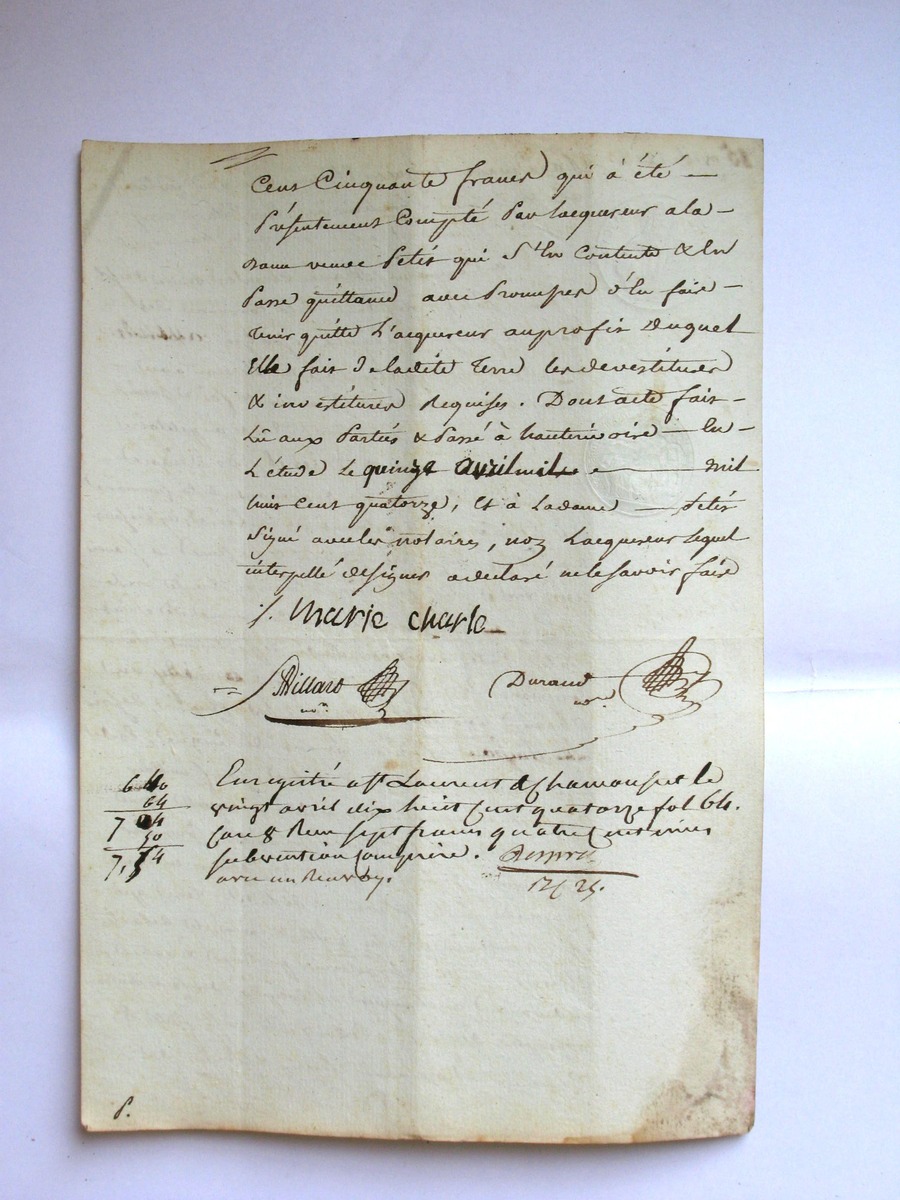 Cent Cinquante francs qui à été —
Présentement Compté Par Lacquereur a la —
dame veuve Petit qui S'En Contente & En
Passe quittance avec Promesse d'En faire —
Tenir quitte L'acquereur au profit Duquel
Elle fait De ladite Terre les devestitures
& investitures Requises. Dont acte fait —
Lû aux Parties & Passé à hauteriv — En —
L'étude Le quinze avril mil — mil
huit Cent quatorze, Et à Ladame — Petit
Signé avec les notaires, non Lacquereur Lequel
interpellé de signer a declaré ne le savoir faire
/. Marie charle
Billard
no.re
Durand
no.re
6 40
64
7 04
50
7,54
Enregistré a St Laurent de Chamousset le
vingt avril dix huit Cent quatorze fol 64.
Case 8 Reçu sept francs quatre Centimes
subvention Comprise.
avec un Renvoy.